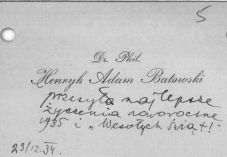 5
Dr. Phil.
Henryk Adam Batowski
przesyła najlepsze
życzenia noworoczne
1935 i „Wesołych Świąt!"
23/12.34.